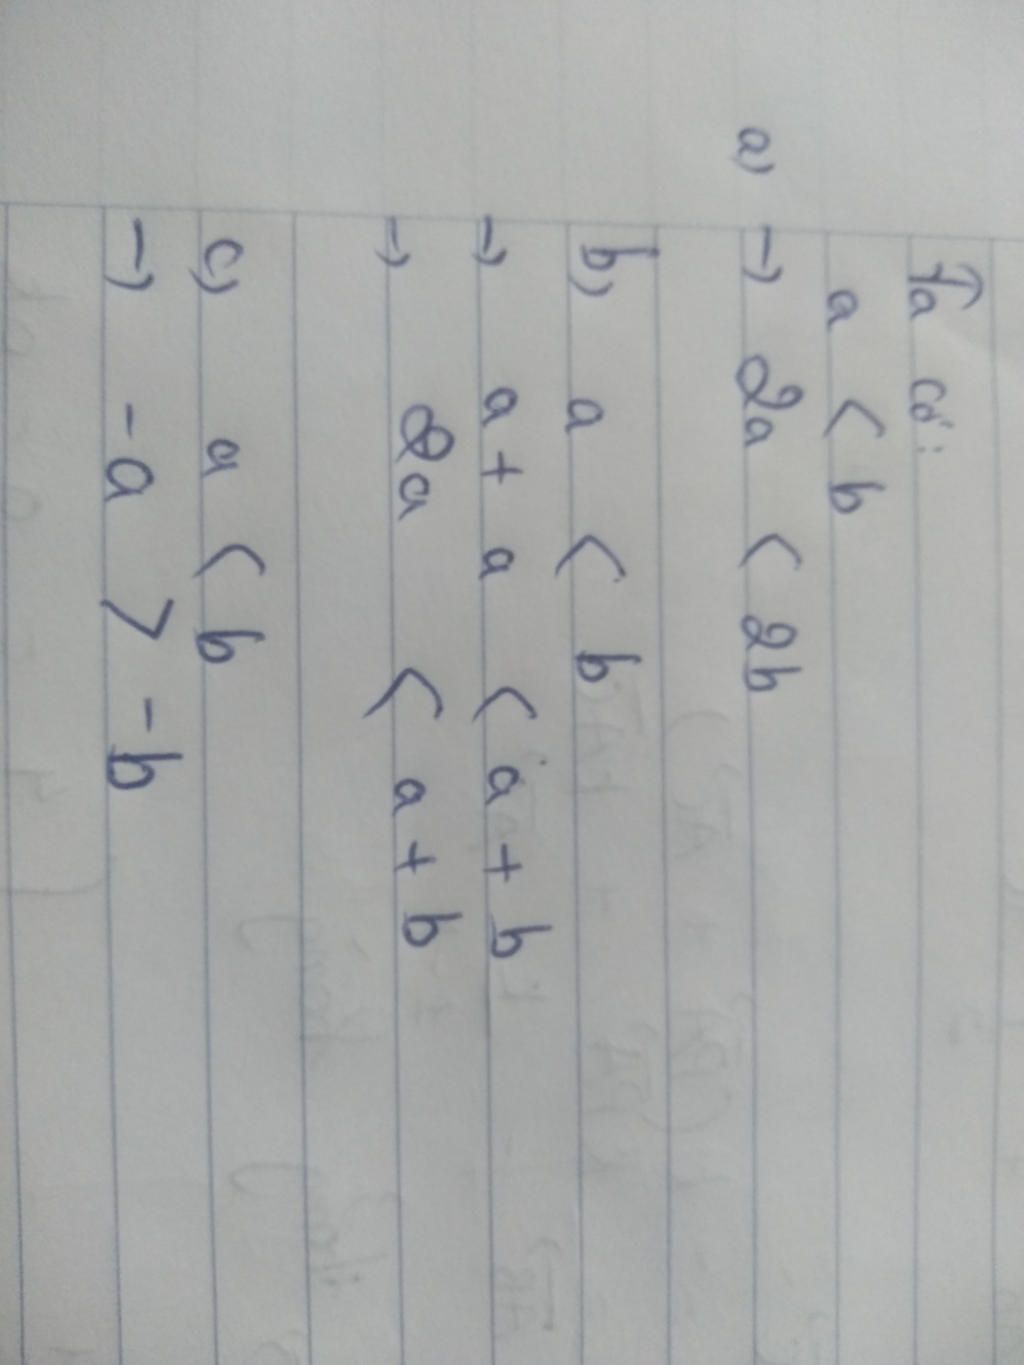 Ta có:
a < b
a) → 2a < 2b
b) a < b
→ a + a < a + b
→ 2a < a + b
c) a < b
→ -a > -b